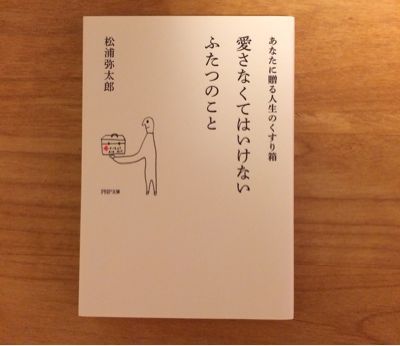 あなたに贈る人生のくすり箱
愛さなくてはいけない
ふたつのこと
松浦弥太郎
PHP文庫